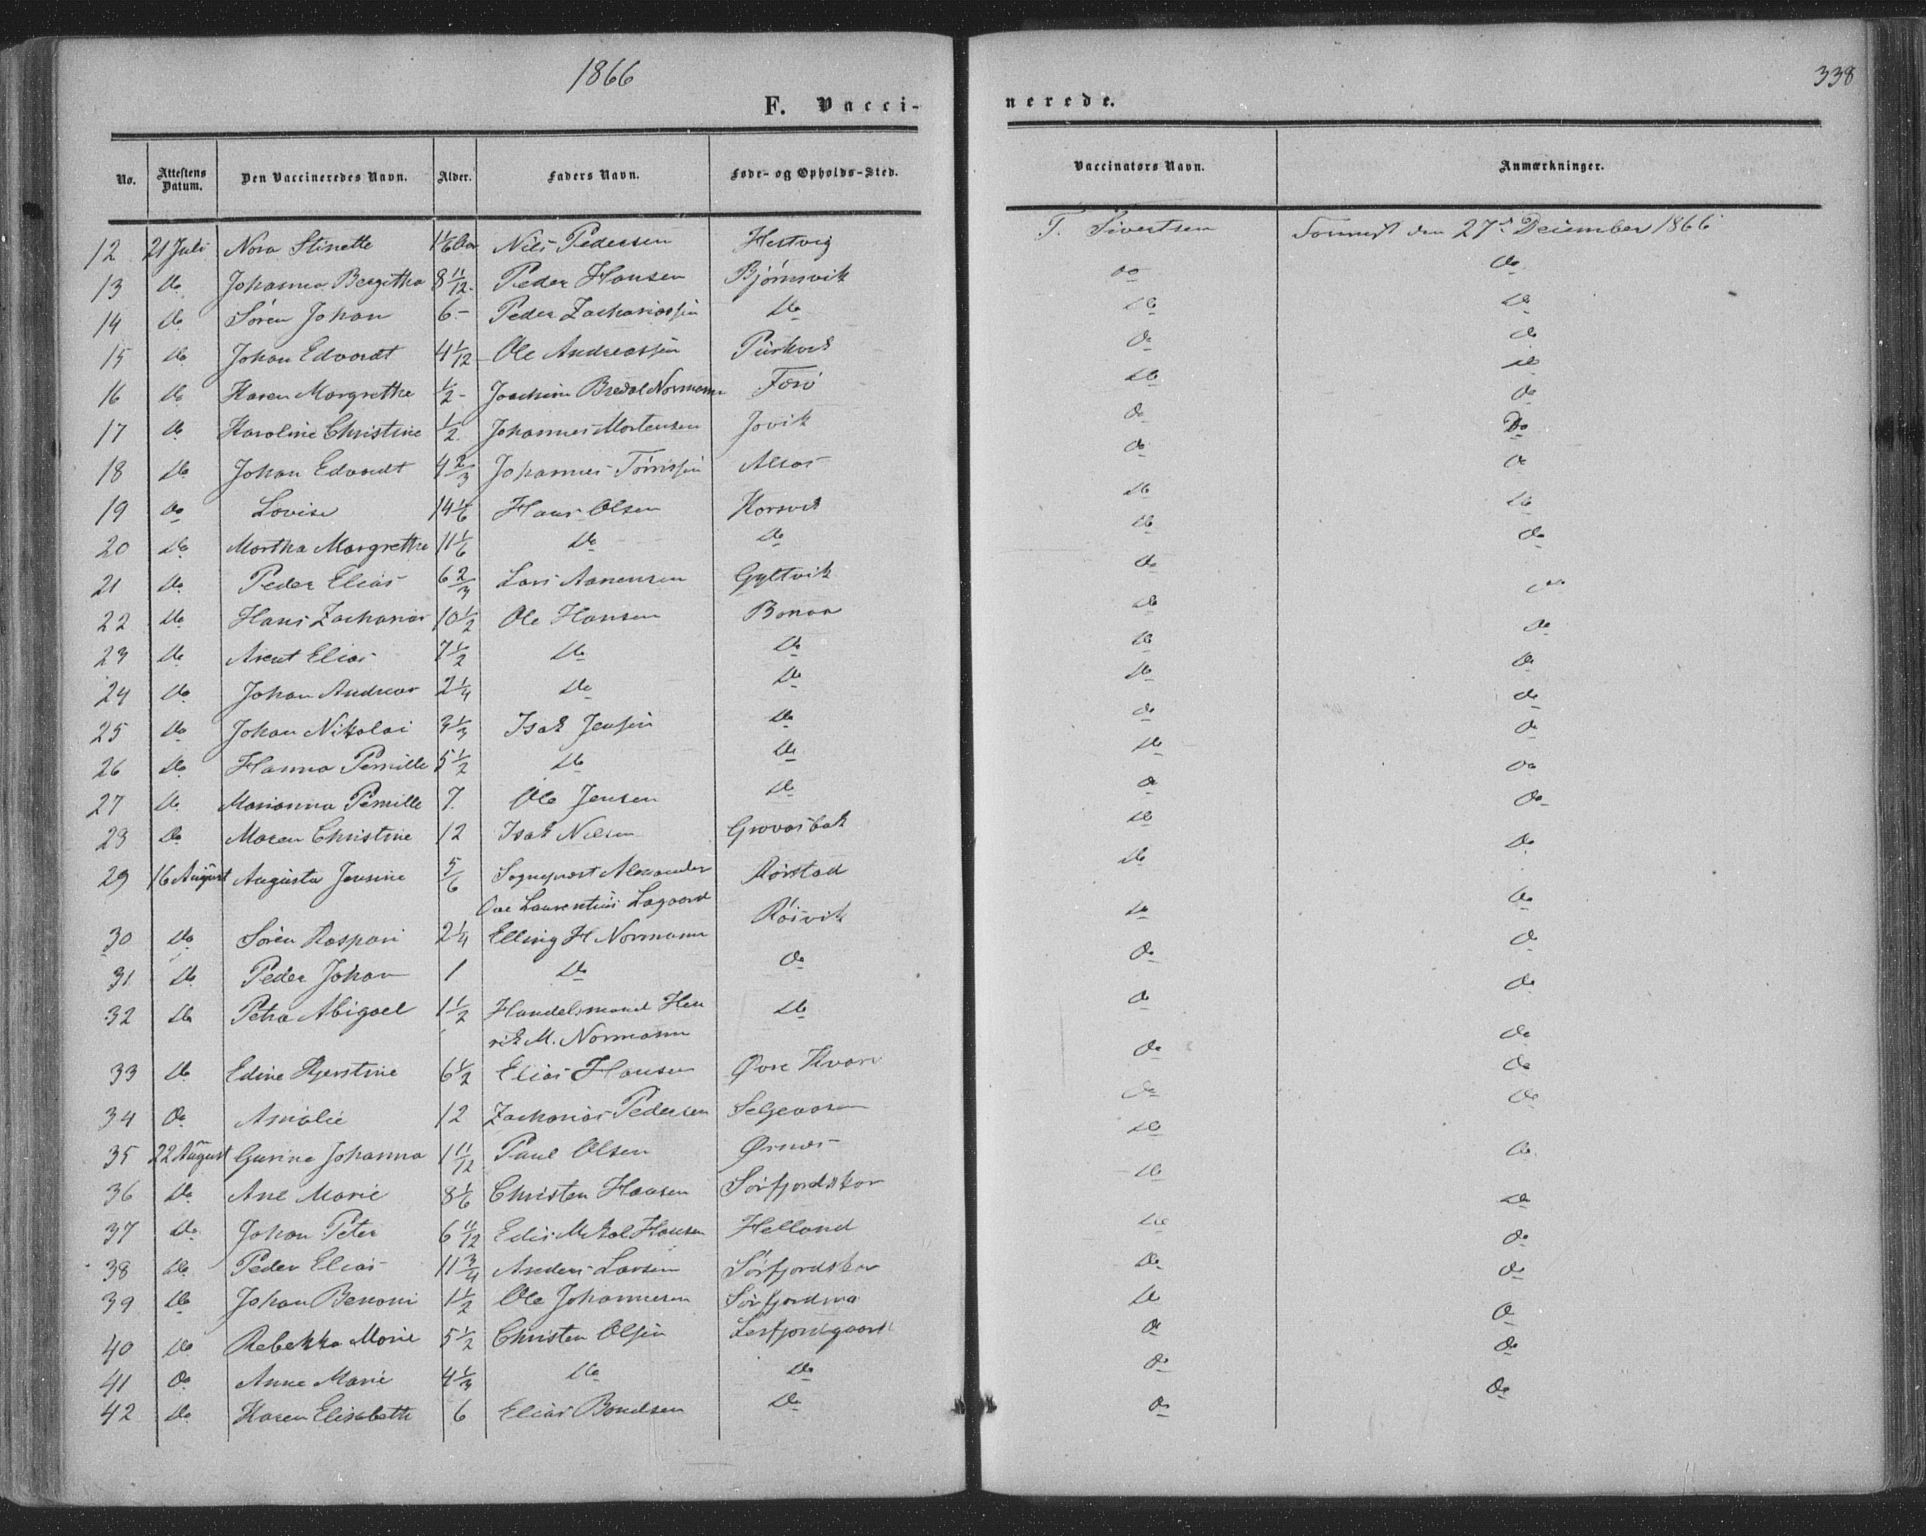 1866
338
F. Vaccinerede.
No. Attestens Datum. Den Vaccineredes Navn. Alder. Faders Navn. Føde- og Opholds-Sted. Vaccinators Navn. Anmærkninger.
12 21 Juli Nora Stinette 1 1/6 Aar Nils Pedersen Hestvig T. Sivertsen den 27de December 1866
13 Do Johanna Bergitha 8 11/12 Peder Hansen Bjørnsvik Do Do
14 Do Søren Johan 6 - Peder Zachariassen Do Do Do
15 Do Johan Edvardt 4 1/12 Ole Andreassen Purkvik Do Do
16 Do Karen Margrethe 1/2 - Joachim Bredal Normann Forø Do Do
17 Do Karoline Christine 1/2 Johannes Mortensen Jøvik Do Do
18 Do Johan Edvardt 4 2/3 Johannes Tørrissen Alsos Do Do
19 Do Lovise 14 1/6 Hans Olsen Korsvik Do Do
20 Do Martha Margrethe 11 1/6 Do Do Do Do
21 Do Peder Elias 6 2/3 Lars Aanensen Gyltvik Do Do
22 Do Hans Zacharias 10 1/2 Ole Hansen Bonaa Do Do
23 Do Arent Elias 7 1/2 Do Do Do Do
24 Do Johan Andreas 2 1/4 Do Do Do Do
25 Do Johan Nikolai 3 1/3 Isak Jensen Do Do Do
26 Do Hanna Pernille 5 1/2 Do Do Do Do
27 Do Marianna Pernille 7. Ole Jensen Do Do Do
28 Do Maren Christine 12 Isak Nilsen Grovasbak Do Do
29 16 August Augusta Jensine 5/6 Sogneprest Alexander Rørstad Do Do
Ove Laurentius Lagaard
30 Do Søren Kaspari 2 1/4 Elling H Normann Røsvik Do Do
31 Do Peder Johan 1 Do Do Do Do
32 Do Petra Abigael 1 1/2 Handelsmand Hen Do Do Do
rik M. Normann
33 Do Edine Kjerstine 6 1/2 Elias Hansen Øvre Kvarv Do Do
34 Do Amalie 12 Zacharias Pedersen Do Do
35 22 August Gurina Johanna 1 11/12 Paul Olsen Ørnes Do Do
36 Do Ane Marie 8 1/6 Christen Hansen Sørfjordskar Do Do
37 Do Johan Peter 6 11/12 Hansen Helland Do Do
38 Do Peder Elias 11 3/4 Anders Larsen Sørfjordskar Do Do
39 Do Johan Benoni 1 1/2 Ole Johannesen Sørfjordmo Do Do
40 Do Rebekka Marie 5 1/2 Christen Olsen Do Do
41 Do Anne Marie 4 1/3 Do Do Do Do
42 Do Karen Elisabeth 6 Elias Bendsen Do Do Do